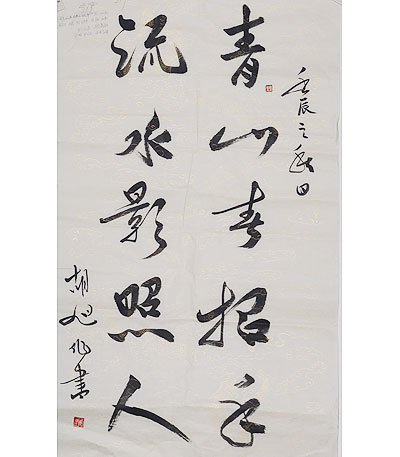 壬辰之秋日
青山春招手
流水影照人
胡旭作書